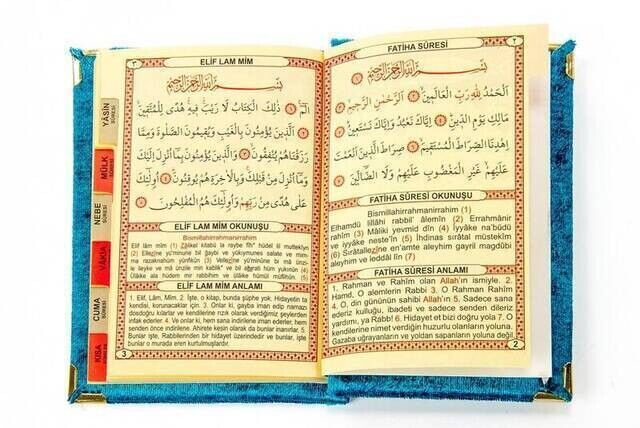 FATİHA SÛRESİ
٢
بِسْمِ اللهِ الرَّحْمٰنِ الرَّحِيمِ
اَلْحَمْدُ لِلّٰهِ رَبِّ الْعَالَمِينَ اَلرَّحْمٰنِ الرَّحِيمِ
مَالِكِ يَوْمِ الدِّينِ اِيَّاكَ نَعْبُدُ وَاِيَّاكَ نَسْتَعِينُ
اِهْدِنَا الصِّرَاطَ الْمُسْتَقِيمَ صِرَاطَ الَّذِينَ اَنْعَمْتَ
عَلَيْهِمْ غَيْرِ الْمَغْضُوبِ عَلَيْهِمْ وَلَا الضَّالِّينَ
FATİHA SÛRESİ OKUNUŞU
Bismillahirrahmanirrahim (1)
Elhamdü lillâhi rabbil' âlemîn (2) Errahmânir
rahîm (3) Mâliki yevmid dîn (4) İyyâke na'büdü
ve iyyâke neste'în (5) İhdinas sırâtal müstekîm
(6) Sırâtallezîne en'amte aleyhim gayril magdûbi
aleyhim ve leddâl lîn (7)
FATİHA SÛRESİ ANLAMI
1. Rahman ve Rahim olan Allah'ın ismiyle. 2.
Hamd, O alemlerin Rabbi 3. O Rahman Rahim
4. O, din gününün sahibi Allah'ın 5. Sadece sana
ederiz kulluğu, ibadeti ve sadece senden dileriz
yardımı, ya Rabb! 6. Hidayet et bizi doğru yola 7. O
kendilerine nimet verdiğin huzurlu olanların yoluna.
Gazaba uğrayanların ve yoldan sapanların yoluna değil.
2
٣
ELİF LAM MİM
بِسْمِ اللهِ الرَّحْمٰنِ الرَّحِيمِ
الٓمٓ ذٰلِكَ الْكِتَابُ لَا رَيْبَ فِيهِ هُدًى لِلْمُتَّقِينَ
اَلَّذِينَ يُؤْمِنُونَ بِالْغَيْبِ وَيُقِيمُونَ الصَّلٰوةَ وَمِمَّا
رَزَقْنَاهُمْ يُنْفِقُونَ وَالَّذِينَ يُؤْمِنُونَ بِمَا اُنْزِلَ اِلَيْكَ
وَمَا اُنْزِلَ مِنْ قَبْلِكَ وَبِالْاٰخِرَةِ هُمْ يُوقِنُونَ اُولٰئِكَ
عَلٰى هُدًى مِنْ رَبِّهِمْ وَاُولٰئِكَ هُمُ الْمُفْلِحُونَ
ELİF LAM MİM OKUNUŞU
Bismillahirrahmanirrahim
Elif lâm mîm (1) Zâlikel kitabü la raybe fîh* hüdel lil müttekîyn
(2) Ellezîne yü'minune bil ğaybi ve yükıymunes salate ve mim-
ma razaknahüm yünfikûn (3) Vellezîne yü'minune bi mâ ünzi-
le ileyke ve mâ ünzile min kablik* ve bil ahırati hüm yûkınûn (4)
Ülâike ala hüdem mir rabbihim ve ülâike hümül müflihûn (5)
ELİF LAM MİM ANLAMI
1. Elif, Lâm, Mîm. 2. İşte, o kitap, bunda şüphe yok, Hidayetin ta
kendisi, korunacaklar için. 3. Onlar ki, gayba iman edip namazı
dosdoğru kılarlar ve kendilerine rızık olarak verdiğimiz şeylerden
infak ederler. 4. Ve onlar ki, hem sana indirilene iman ederler, hem
senden önce indirilene. Ahirete kesin olarak da bunlar inanırlar. 5.
Bunlar işte, Rabbilerinden bir hidayet üzerindedir ve bunlar, işte
bunlar o murada eren kurtulmuşlardır.
3
YÂSİN
SÛRESİ
MÜLK
SÛRESİ
NEBE
SÛRESİ
VAKIA
CUMA
SÛRESİ
KISA